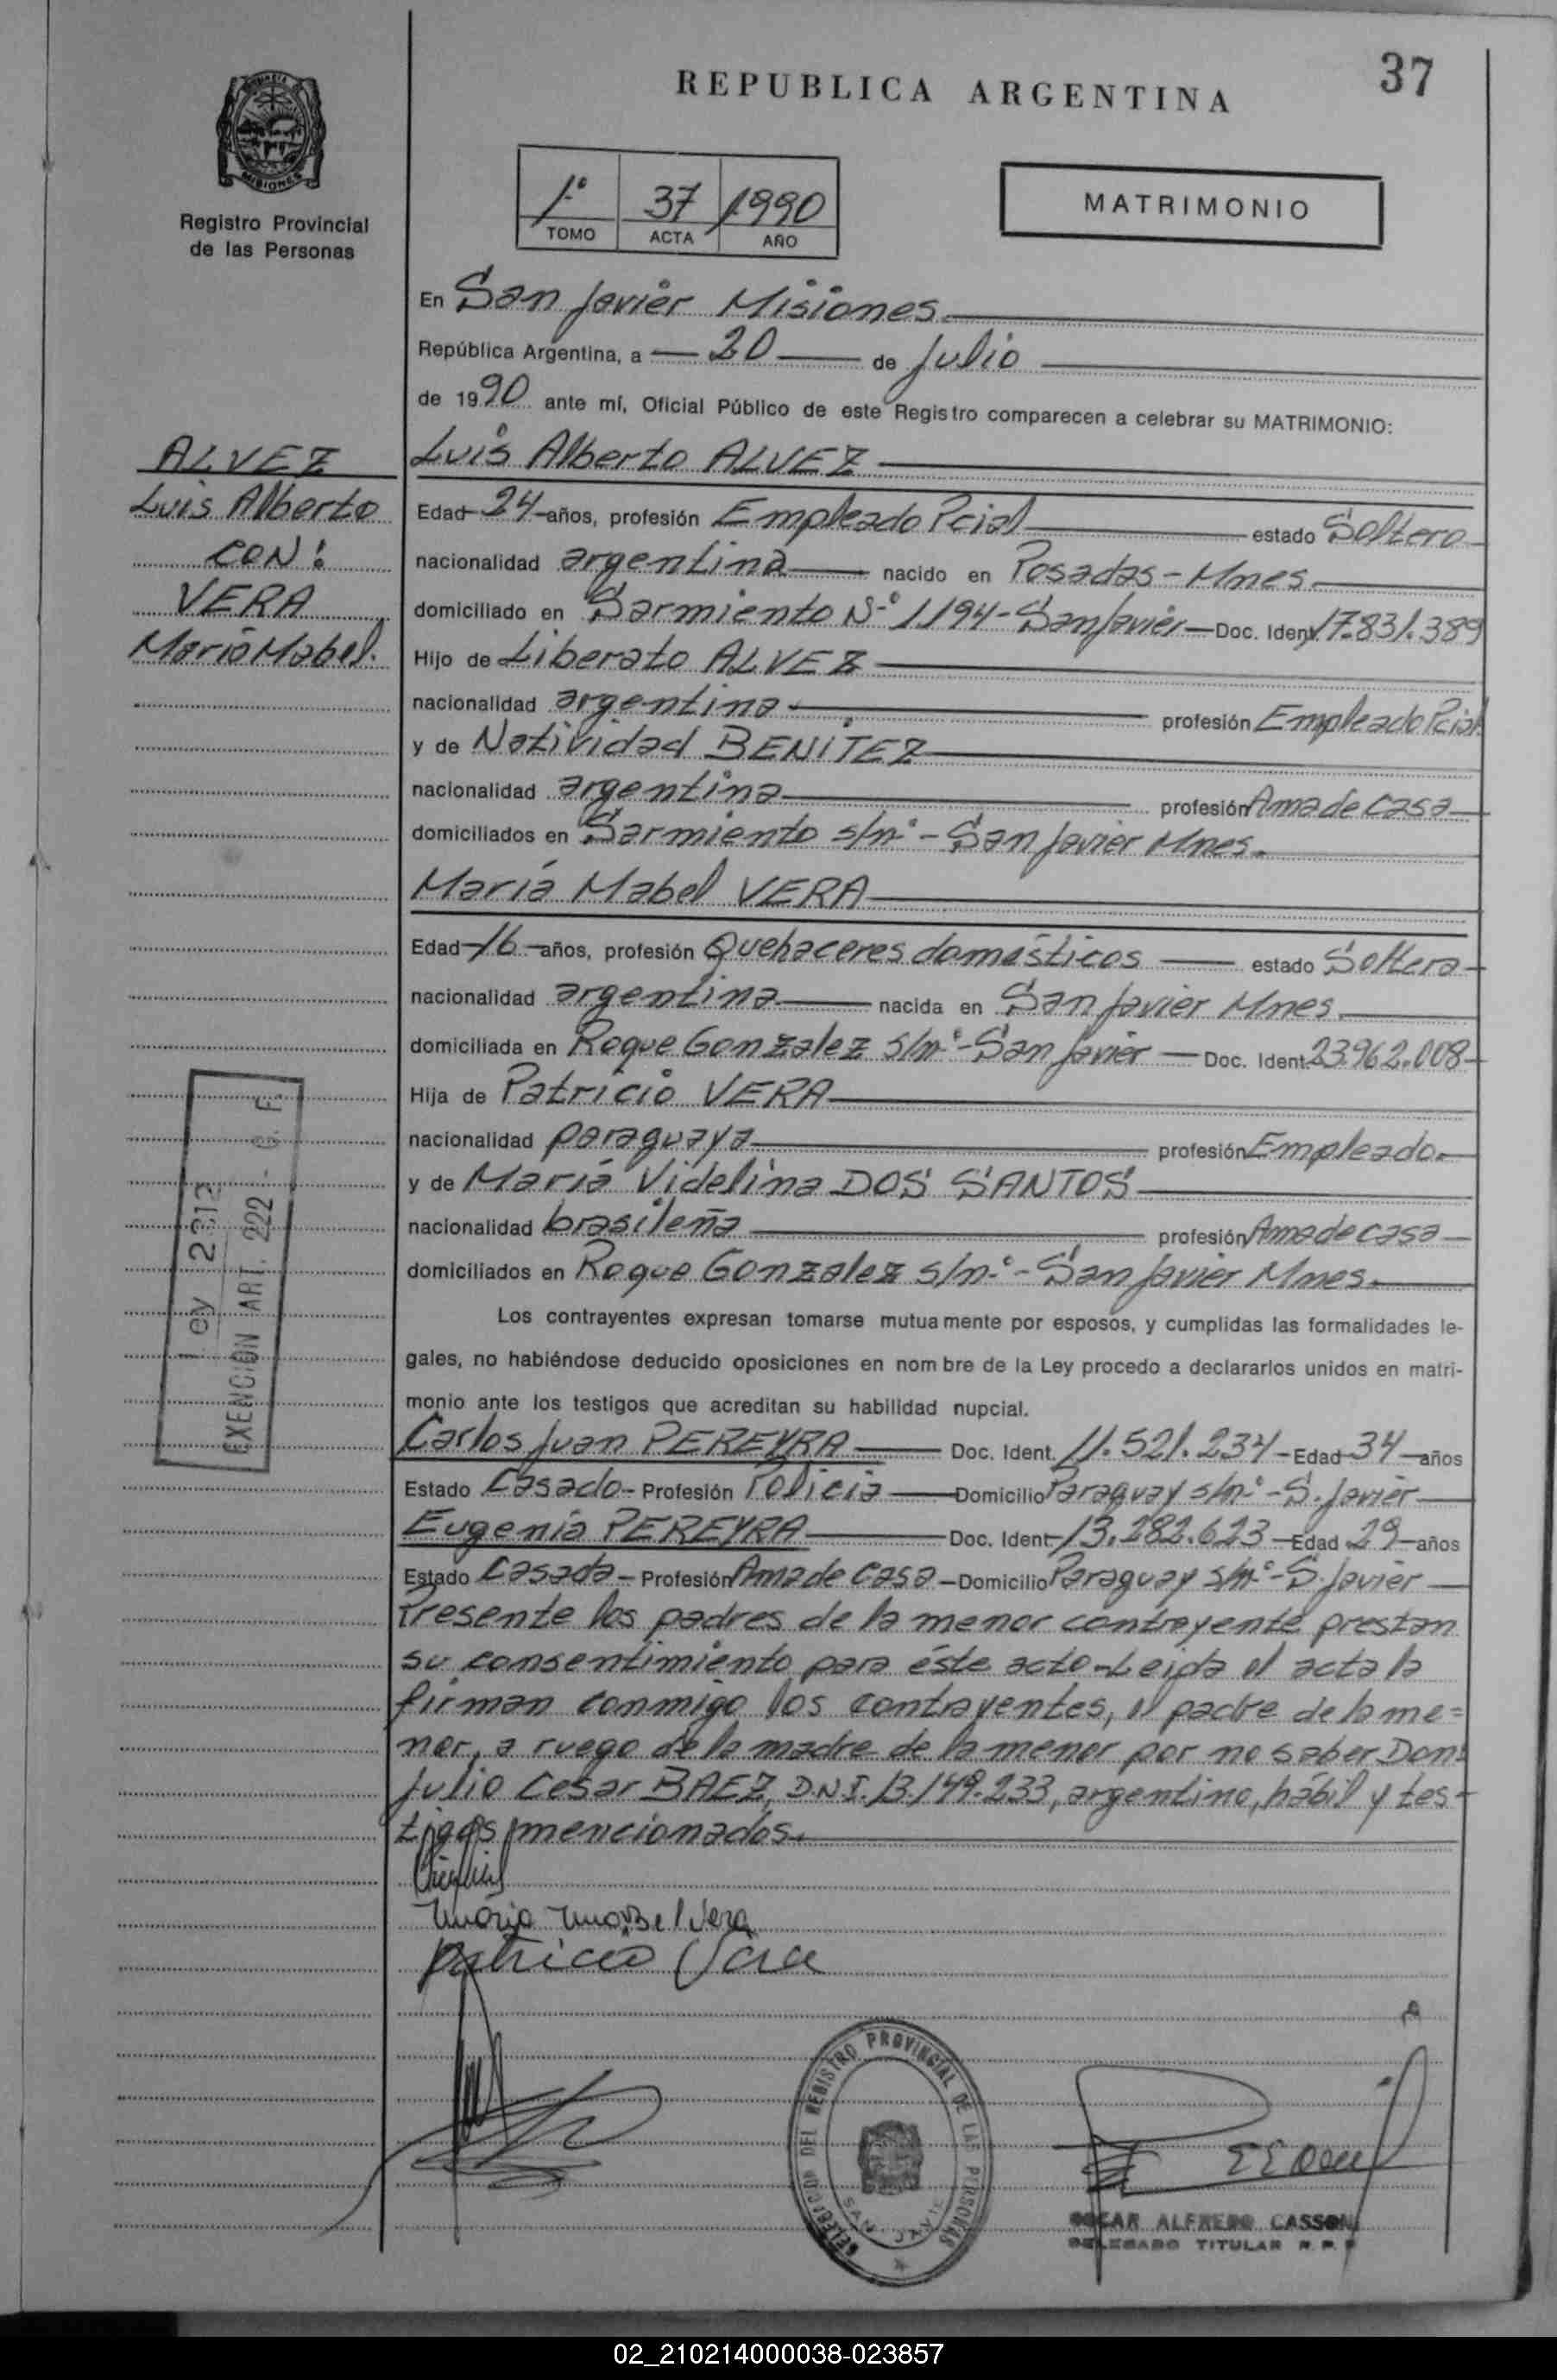 37
REPUBLICA ARGENTINA
MISIONES
Registro Provincial
de las Personas
1º 37 1990
TOMO ACTA AÑO
MATRIMONIO
En San Javier Misiones
República Argentina, a 20 de Julio
de 1990 ante mí, Oficial Público de este Registro comparecen a celebrar su MATRIMONIO:
ALVEZ
Luis Alberto
CON:
VERA
María Mabel.
Luis Alberto ALVEZ
Edad 24 años, profesión Empleado Pcial estado Soltero
nacionalidad argentina nacido en Posadas - Mnes.
domiciliado en Sarmiento Nº 1194 - San Javier Doc. Ident. 17.831.389
Hijo de Liberato ALVEZ
nacionalidad argentina profesión Empleado Pcial.
y de Natividad BENITEZ
nacionalidad argentina profesión Ama de casa
domiciliados en Sarmiento s/nº - San Javier Mnes.
María Mabel VERA
Edad 16 años, profesión Quehaceres domésticos estado Soltera
nacionalidad argentina nacida en San Javier Mnes.
domiciliada en Roque Gonzalez s/nº - San Javier Doc. Ident. 23.962.008
Hija de Patricio VERA
nacionalidad paraguaya profesión Empleado.
y de María Videlina DOS SANTOS
nacionalidad brasileña profesión Ama de casa
domiciliados en Roque Gonzalez s/nº - San Javier Mnes.
Los contrayentes expresan tomarse mutuamente por esposos, y cumplidas las formalidades le-
gales, no habiéndose deducido oposiciones en nombre de la Ley procedo a declararlos unidos en matri-
monio ante los testigos que acreditan su habilidad nupcial.
Carlos Juan PEREYRA Doc. Ident. 11.521.234 - Edad 34 años
Estado Casado - Profesión Policia Domicilio Paraguay s/nº - S. Javier
Eugenia PEREYRA Doc. Ident. 13.282.623 Edad 29 años
Estado Casada - Profesión Ama de casa - Domicilio Paraguay s/nº - S. Javier
Presente los padres de la menor contrayente prestan
su consentimiento para éste acto - Leida el acta la
firman conmigo los contrayentes, el padre de la me=
nor, a ruego de la madre de la menor por no saber Don:
Julio Cesar BAEZ, D.N.I. 13.149.233, argentino, hábil y tes-
tigos mencionados.
Ley 2312
EXENCION ART. 222 - C. F.
María Mabel Vera
Patricio Vera
DEL REGISTRO PROVINCIAL DE LAS PERSONAS
SAN JAVIER
OSCAR ALFREDO CASSONI
DELEGADO TITULAR R. P. P.
02_210214000038-023857